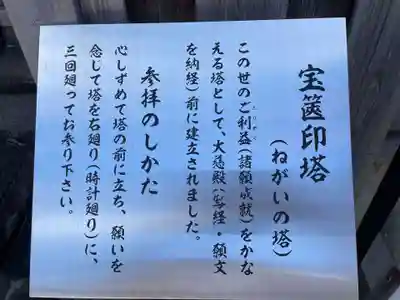 宝篋印塔
(ねがいの塔)
この世のご利益(諸願成就)をかな
える塔として、大慈殿(写経・願文
を納経)前に建立されました。
参拝のしかた
心しずめて塔の前に立ち、願いを
念じて塔を右廻り(時計廻り)に、
三回廻ってお参り下さい。